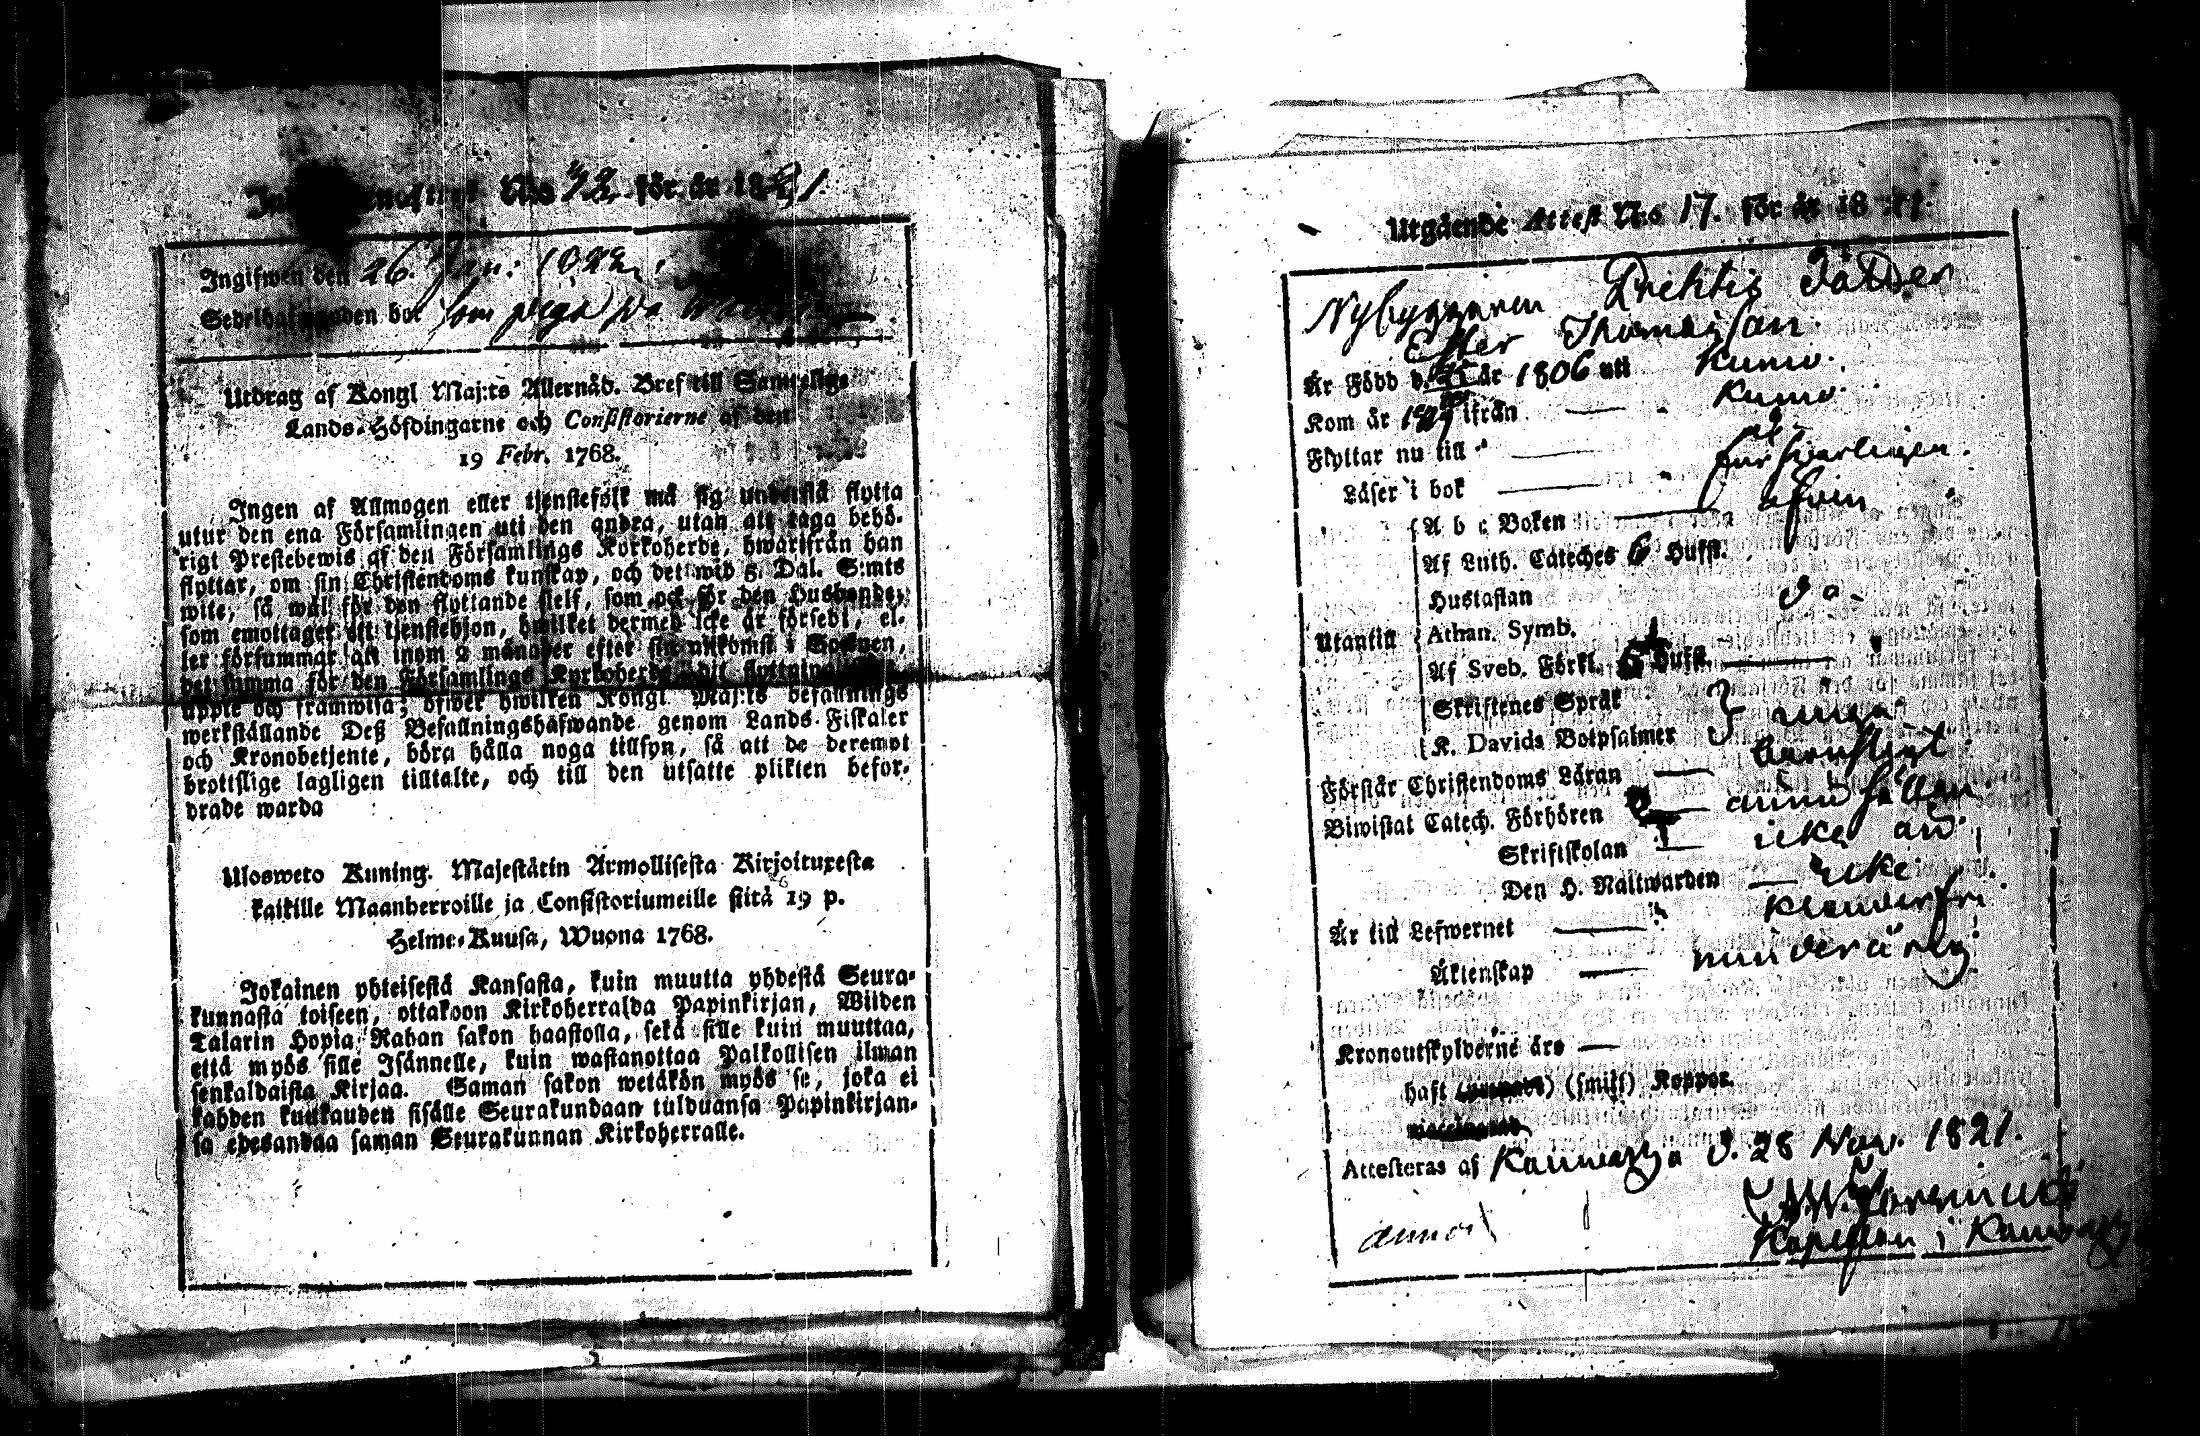 No 72 för år 1821
Ingifwen den 26. Jan: 1822.
den bor som piga på
Utdrag af Kongl Maj:ts Allernåd. Bref till Samtelige
Lands-Höfdingarne och Consistorierne af den
19 Febr. 1768.
Ingen af Allmogen eller tjenstefolk må sig understå flytta
utur den ena Församlingen uti den andra, utan att taga behö-
rigt Prestebewis af den Församlings Kyrkoherde, hwarifrån han
flyttar, om sin Christendoms kunskap, och det wid 5. Dal. S:mts
wite, så wäl för den flyttande sielf, som ock för den Husbonde,
som emottager ett tjenstehjon, hwilket dermed icke är försedt, el-
ler försummar att inom 2 månader efter sin ankomst i Socknen,
det samma för den Församlings Kyrkoherde, dit flyttning
uppte och framwisa; öfwer hwilken Kongl Maj:ts befallnings
werkställande Deß Befallningshafwande genom Lands-Fiskaler
och Kronobetjente, böra hålla noga tillsyn, så att de deremot
brottslige lagligen tilltalte, och till den utsatte plikten befor-
drade warda
Ulosweto Kuning. Majestätin Armollisesta Kirjoituxesta
kaikille Maanherroille ja Consistoriumeille siitä 19 p.
Helme-Kuusa, Wuona 1768.
Jokainen yhteisestä Kansasta, kuin muutta yhdestä Seura-
kunnasta toiseen, ottakoon Kirkoherralda Papinkirjan, Wiiden
Talarin Hopia Rahan sakon haastolla, sekä sille kuin muuttaa,
että myös sille Isännelle, kuin wastanottaa Palkollisen ilman
senkaldaista Kirjaa. Saman sakon wetäkön myös se, joka ei
kahden kuukauden sisälle Seurakundaan tulduansa Papinkirjan-
sa edesandaa saman Seurakunnan Kirkoherralle.
Utgående Attest N:o 17. för år 1821.
Nybyggaren Prehtis Dåtter
Ester Thomasson.
Är Född d. år 1806 uti Kumo.
Kom år ifrån Kumo
Flyttar nu till
Läser i bok försvarligen.
A b c Boken afven
Af Luth. Cateches 6 Hufst.
Hustaflan do.
Utantill Athan. Symb.
Af Sveb. Förkl. 6 Hufst.
Skriftenes Språk
K. Davids Botpsalmer inga
Förstår Christendoms Läran barnsligt
Biwistat Catech. Förhören ännu sällan
Skriftskolan icke än
Den H. Nattwarden icke
Är till Lefwernet klanderfri
Äktenskap minderårig
Kronoutskylderne äro
haft (smitt) Koppor.
Attesteras af Kauwatza d. 28 Nov. 1821.
Kapellan i Kauwatza